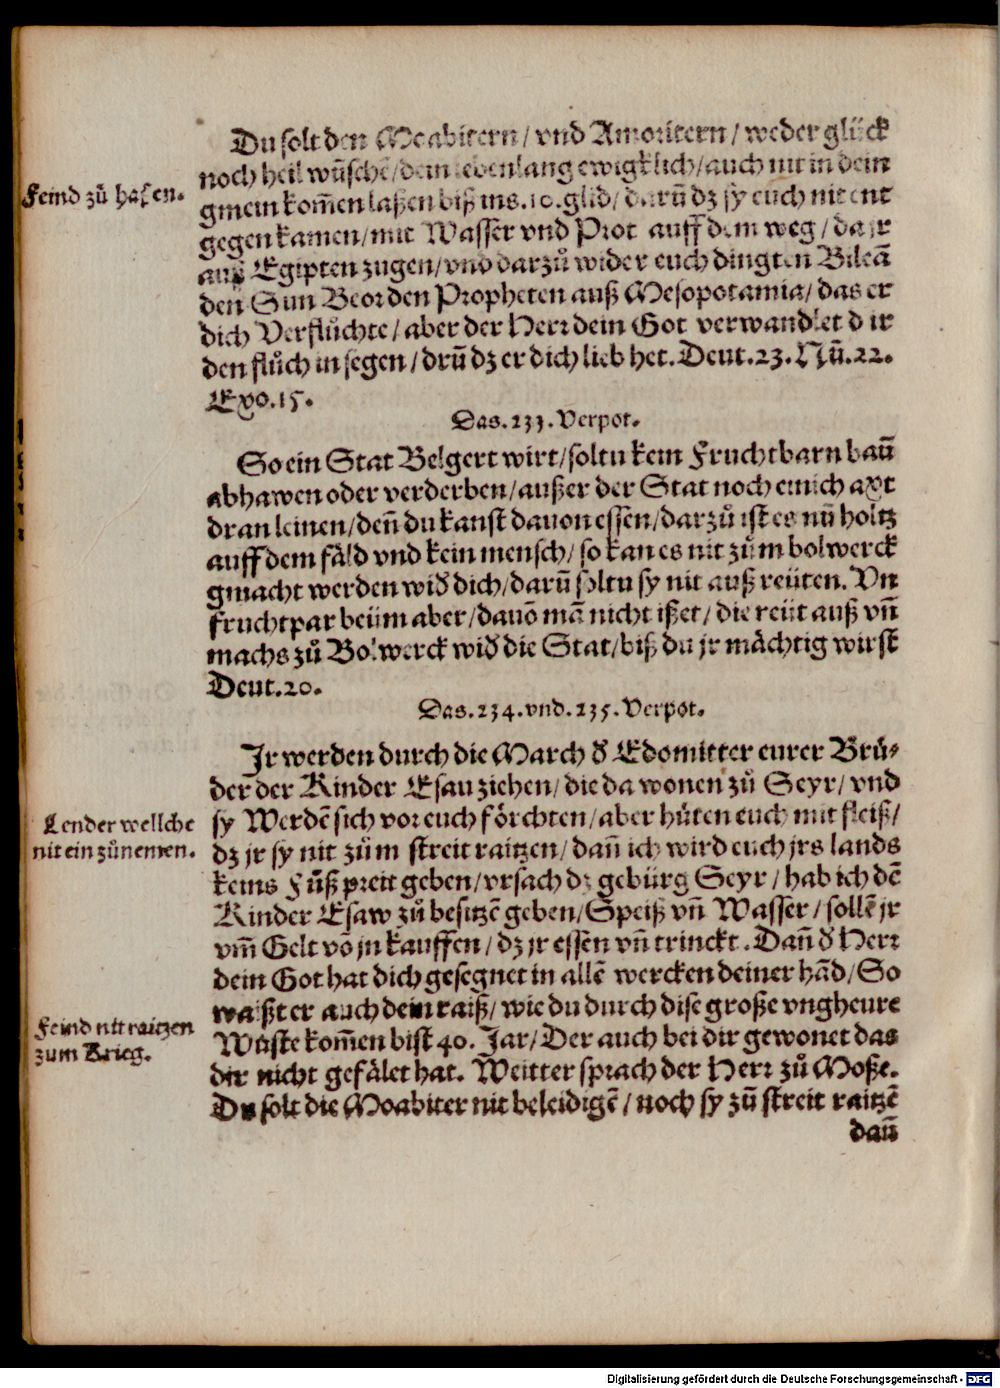 Du solt den Moabitern / vnd Amoritern / weder glück
noch heil wüschē / dein lebenlang ewigklich / auch nit in dein
Feind zů haſen.
gmein kom̄en laßen biß ins .10. glid / darū dz sy euch nit ent
gegen kamen / mit Wasser vnd Prot auff dem weg / da jr
auß Egipten zugen / vnd darzů wider euch dingten Bileā
den Sun Beor den Propheten auß Mesopotamia / das er
dich Verflůchte / aber der Herr dein Got verwandlet dir
den flůch in segen / drū dz er dich lieb het. Deut. 23. Nū. 22.
Exo. 15.
Das. 233. Verpot.
So ein Stat Belgert wirt / soltu kein Fruchtbarn baū
abhawen oder verderben / außer der Stat noch einich axt
dran leinen / den̄ du kanst dauon essen / darzů ist es nū holtz
auff dem fäld vnd kein mensch / so kan es nit zům bolwerck
gmacht werden wid' dich / darū soltu sy nit auß reüten. Vn
fruchtpar beüm aber / dauō mā nicht ißet / die reüt auß vn̄
machs zů Bolwerck wid' die Stat / biß du jr mächtig wirst
Deut. 20.
Das. 234. vnd. 235. Verpot.
Ir werden durch die March d' Edomitter eurer Brü-
der der Kinder Esau ziehen / die da wonen zů Seyr / vnd
Lender wellche
nit ein zů nemen.
sy Werdē sich vor euch förchten / aber hüten euch mit fleiß /
dz jr sy nit zům streit raitzen / dan̄ ich wird euch jrs lands
keins Fůß preit geben / vrsach dz gebürg Seyr / hab ich dē
Kinder Esaw zů besitzē geben / Speiß vn̄ Wasser / sollē jr
vm̄ Gelt vō jn kauffen / dz jr essen vn̄ trinckt. Dan̄ d' Herr
dein Got hat dich gesegnet in allē wercken deiner hād / So
waißt er auch dein raiß / wie du durch dise große vngheure
Feind nit raitzen
zum Krieg.
Wůste kom̄en bist 40. Jar / Der auch bei dir gewonet das
dir nicht gefälet hat. Weitter sprach der Herr zů Moße.
Du solt die Moabiter nit beleidigē / noch sy zů streit raitzē
dan̄
Digitalisierung gefördert durch die Deutsche Forschungsgemeinschaft - DFG